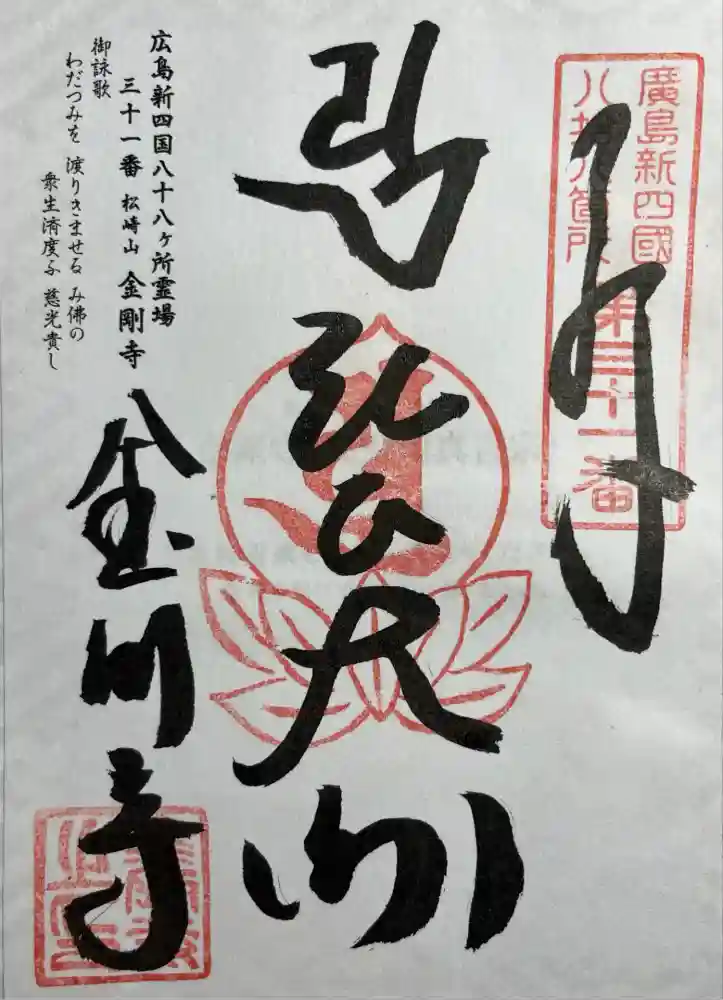 廣島新四國
八拾八箇所
第三十一番
大師
広島新四国八十八ヶ所霊場
三十一番 松崎山 金剛寺
御詠歌
わだつみを 渡りきませる み佛の
衆生済度ふ 慈光貴し
金剛寺